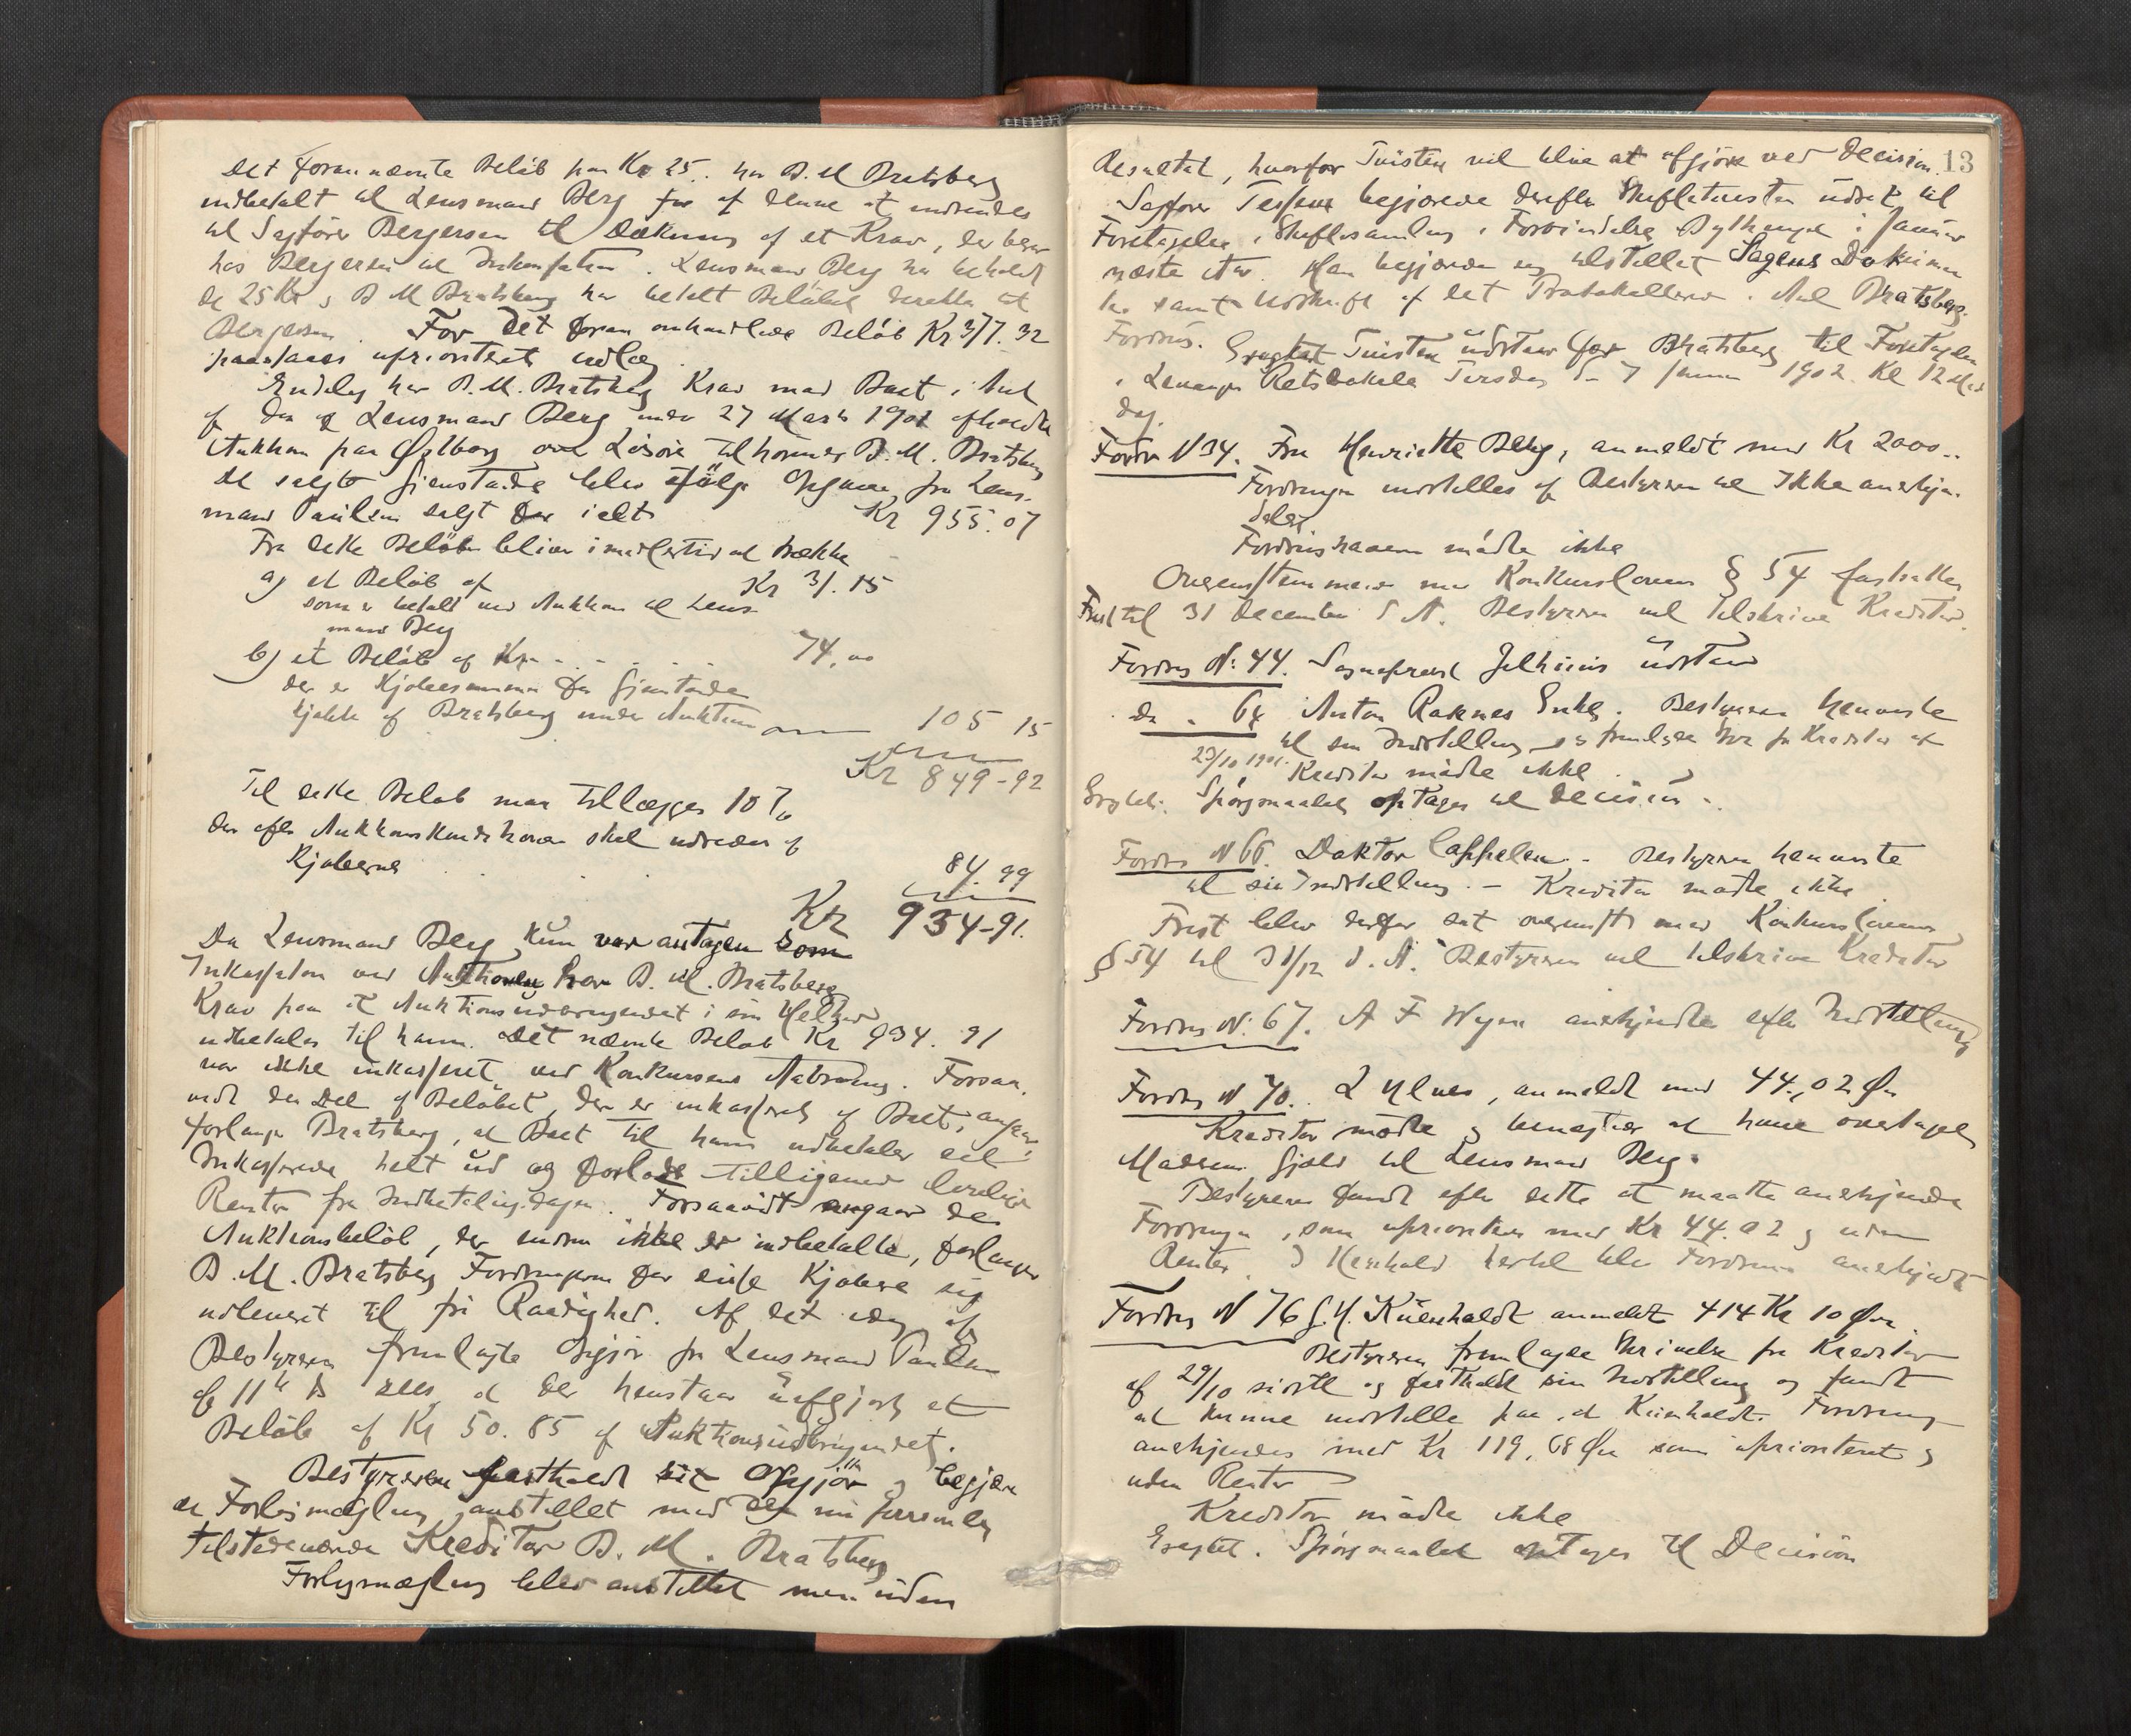 Det forannævnte Beløb paa Kr 25.. har B. M Bratsberg
indbetalt til Lensmand Berg for af denne at indsendes
til Sagfører Bergersen til Dækning af et Krav, der beror
hos Bergersen til Inkassation. Lensmand Berg har beholdt
de 25 Kr og B M Bratsberg har betalt Beløbet direkte til
Bergersen. For det foran omhandlede Beløb Kr 377.32
paastaaes uprioriteret udlæg.
Endelig har B. M. Bratsberg Krav mod Boet i Anl
af den af Lensmand Berg under 27 Marts 1901 afholdte
Auktion paa Østborg over Løsøre tilhørende B. M. Bratsberg
De solgte Gjenstande blev ifølge Opgave fra Lens-
mand Paulsen solgt for ialt Kr 955.07
Fra dette Beløb bliver imidlertid at trække
a) et Beløb af Kr 31.15
som er betalt ved Auktion til Lens-
mand Berg
b) et Beløb af Kr. - . . . . . 74,00
der er Kjøbesummen for Gjenstande
kjøbt af Bratsberg under Auktionen 105 15
Kr 849-92
Til dette Beløb maa tillægges 10 %
der efter Auktionskonditionerne skal udredes af
Kjøberne . . . 84.99
Kr 934-91.
Da Lensmand Berg kun var antagen som
Inkassator ved Auktionen har B. M. Bratsberg
Krav paa at Auktionsudbringendet i sin Helhed
udbetales til ham. Det nævnte Beløb Kr 934.91
var ikke inkasseret ved Konkursens Aabning. Forsaa-
vidt den Del af Beløbet, der er inkasseret af Boet, angaar
forlanger Bratsberg, at Boet til ham udbetaler det
Inkasserede helt ud og tilligemed lovlige
Renter fra Indbetalingsdagen. Forsaavidt angaar de
Auktionsbeløb, der endnu ikke er indbetalte, forlanger
B. M. Bratsberg Fordringerne for disse Kjøbere sig
udleveret til fri Raadighed. Af det idag af
Bestyreren fremlagte Opgjør fra Lensmand Paulsen
af 11te ds sees, at der henstaar uafgjort et
Beløb af Kr 50.85 af Auktionsudbringendet.
Bestyreren fastholdt sit Opgjør og begjærte
Forligsmægling anstillet med den nu personlig
tilstedeværende Kreditor B. M. Bratsberg
Forligsmægling blev anstillet men uden
13
Resultat, hvorfor Tvisten vil blive at afgjøre ved Decision.
Sagfører begjærede derefter Skiftetvisten udsat til
Foretagelse i Skiftesamling i i Januar
næste Aar. Han begjærede sig tilstillet Sagens Dokumen
ter samt Udskrift af det Protokollerede. Anl Bratsbergs
Fordrs. Eragtet Tvisten udstaar for Bratsberg til Foretagelse
i Levanger Retslokale Tirsdag d- 7 Januar 1902. Kl 12 Mid
dag.
Fordr N 34. Fru Henriette Berg, anmeldt med Kr 2000..
Fordringen indstilles af Bestyreren til Ikke anerkjen-
delse.
Fordringshaveren mødte ikke
Overensstemmende med Konkurslovens § 54 fastsattes
Frist til 31 December d. A. Bestyreren vil tilskrive Kreditor.
Fordrs N: 44. Sogneprest Jelhuus udstaar
do . 64 Anton Raknes Enke. Bestyreren henviste
til sin Indstilling og fremlagde Brev fra Kreditor af
29/10 1901. Kreditor mødte ikke
Eragtet: Spørgsmaalet optages til Decision -.
Fordrs N 66. Doktor Cappelen. - Bestyreren henviste
til sin Indstilling. - Kreditor mødte ikke.
Frist blev derfor sat overensst. med Konkurslovens
§ 54 til 31/12 d. A. Bestyreren vil tilskrive Kreditor
Fordrs N: 67. A F Weyen anerkjendtes efter Indstilling
Fordrs N 70. L Ulnes, anmeldt med 44.,02 Øre
Kreditor mødte og benegter at have overtaget
Madsens Gjæld til Lensmand Berg.
Bestyreren fandt efter dette at maatte anerkjende
Fordringen, som uprioriteret med Kr 44.02 og uden
Renter. I Henhold hertil blev Fordringen anerkjendt
Fordrs N 76 J. H. Kuenholdt anmeldt 414 Kr 10 Øre.
Bestyreren fremlagde Skrivelse fra Kreditor
af 29/10 sidstl og fastholdt sin Indstilling og fandt
at kunne indstille paa, at Kuenholdts Fordring
anerkjendes med Kr 119,68 Øre som uprioriteret og
uden Renter
Kreditor mødte ikke
Eragtet. Spørgsmaalet optages til Decision